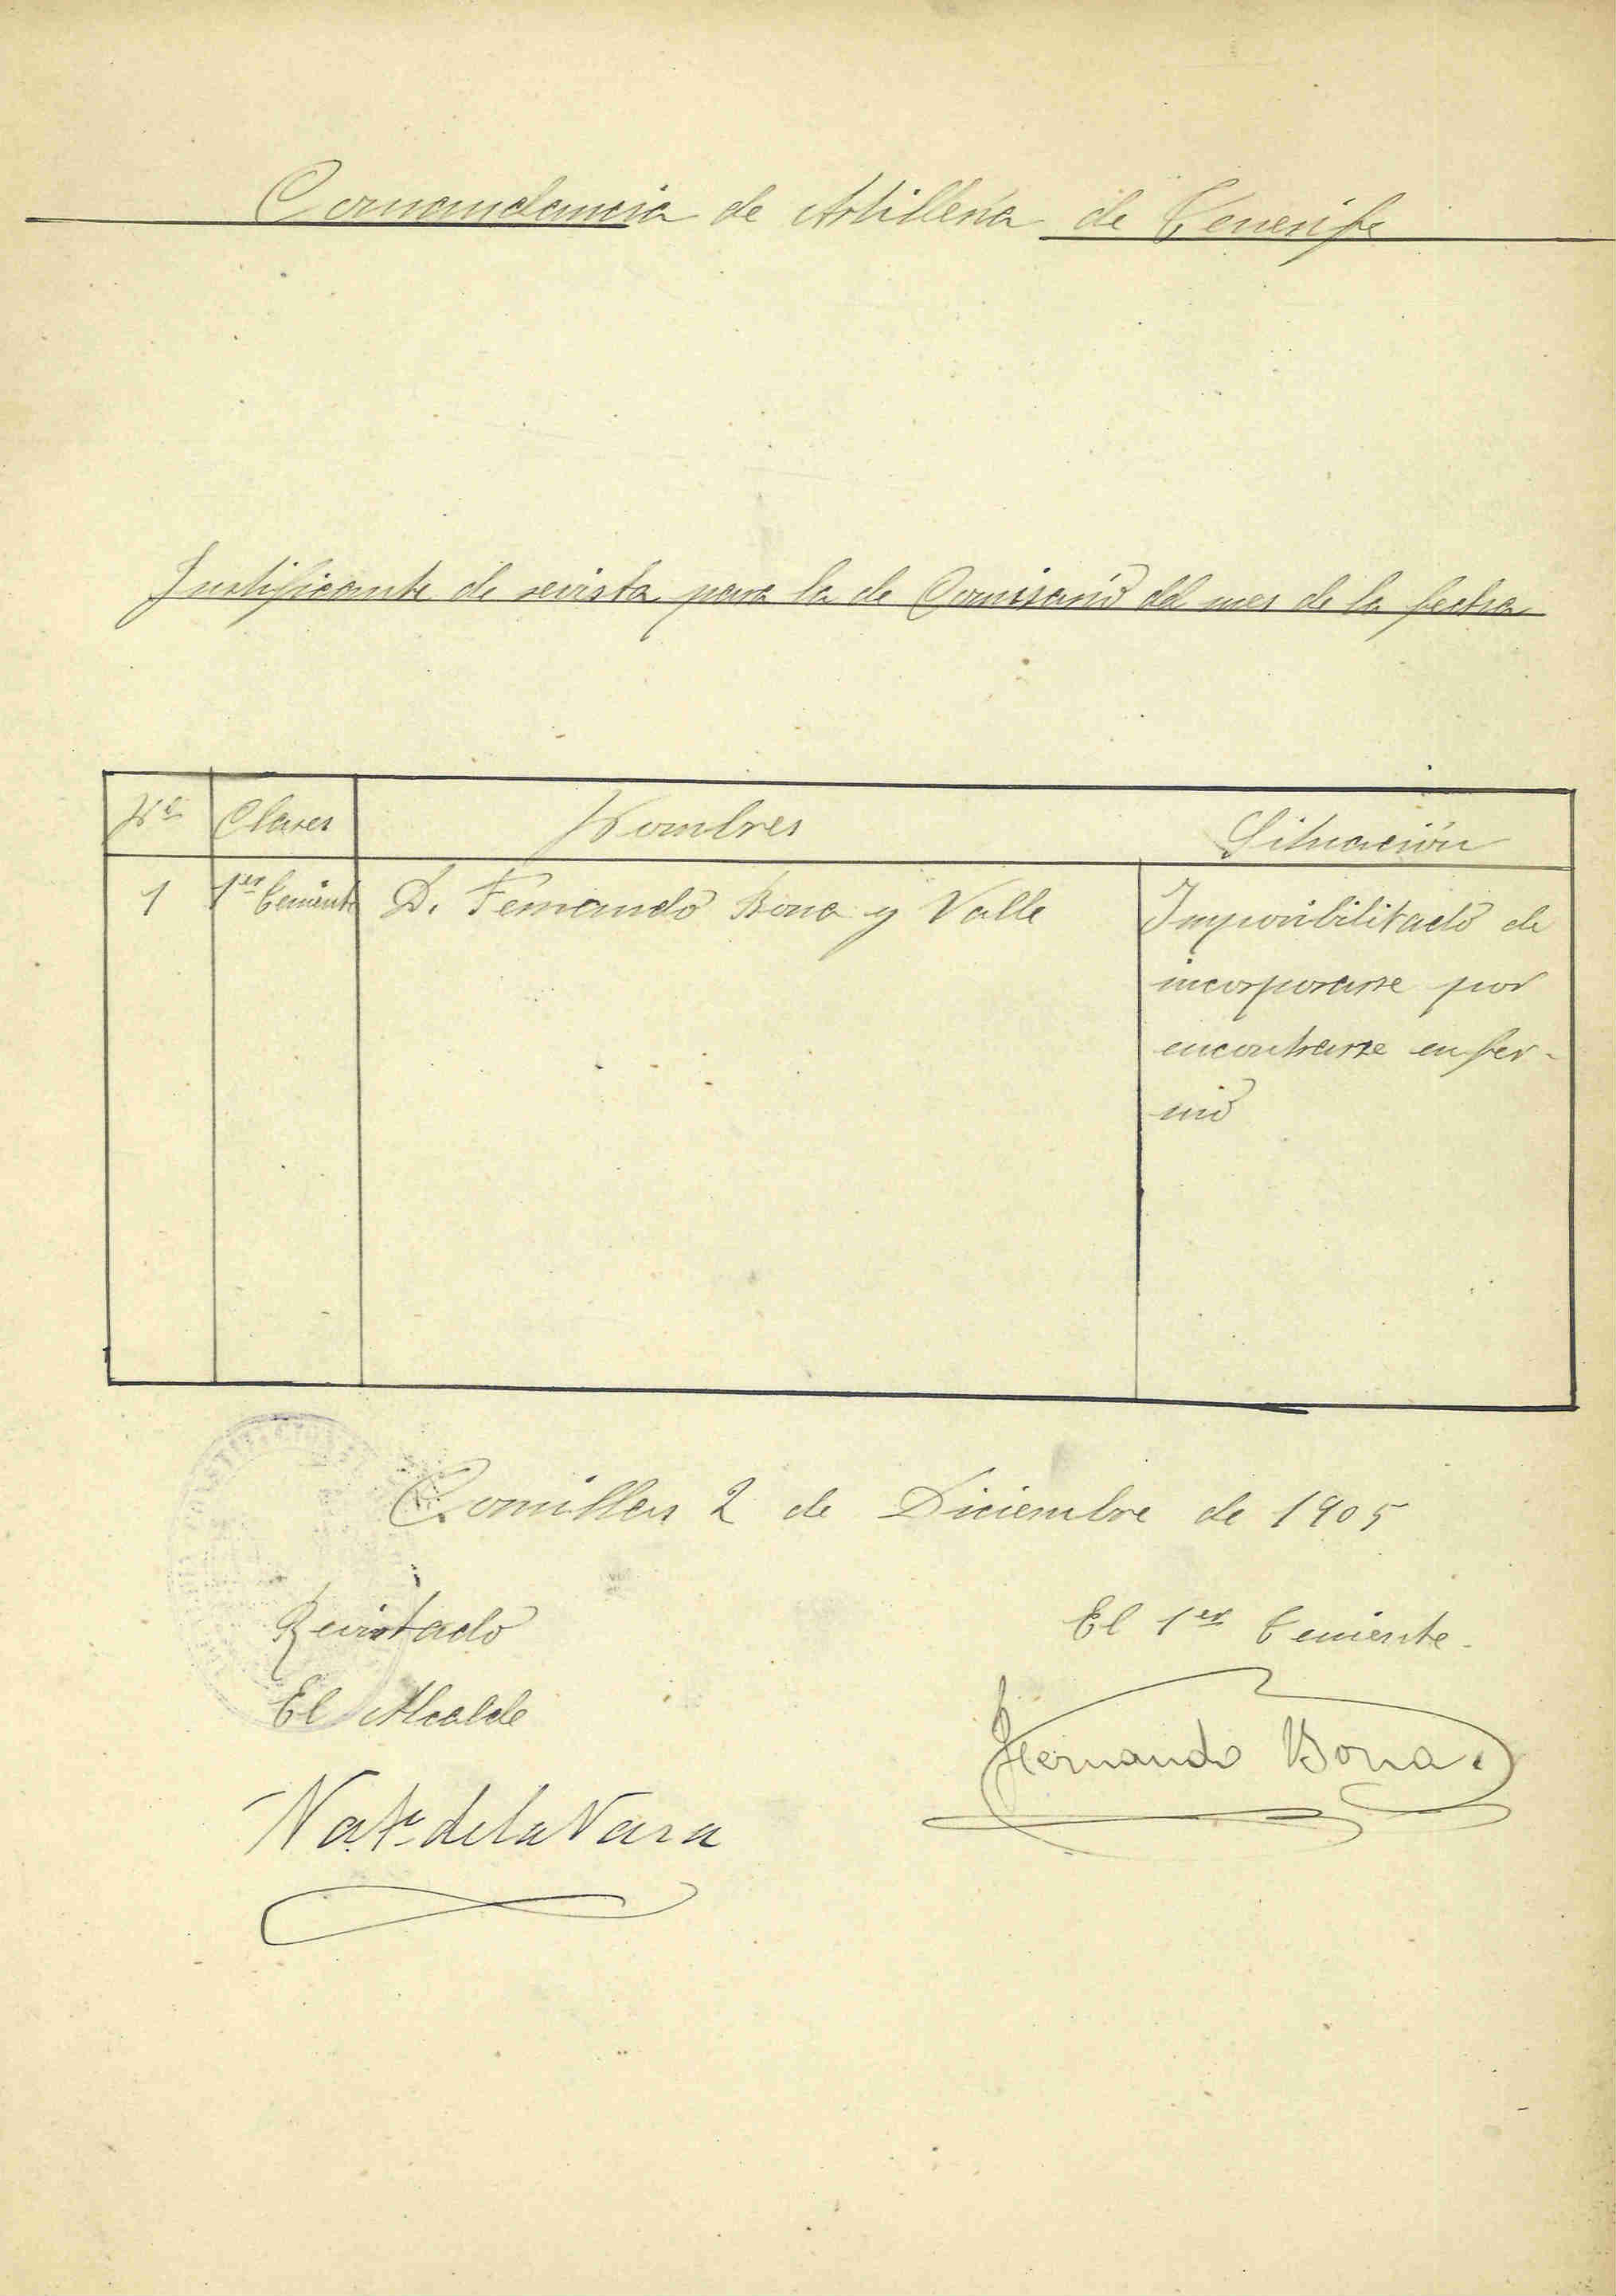 Comandancia de Artillería de Tenerife
Justificante de revista para la de Comisario del mes de la fecha
Nº Clases Nombres Situación
1 1er Teniente D. Fernando Bona y Valle Imposibilitado de
incorporarse por
encontrarse enfer-
mo
Comillas 2 de Diciembre de 1905
Revistado
El 1er Teniente.
El Alcalde
Fernando Bona.
de la Vara